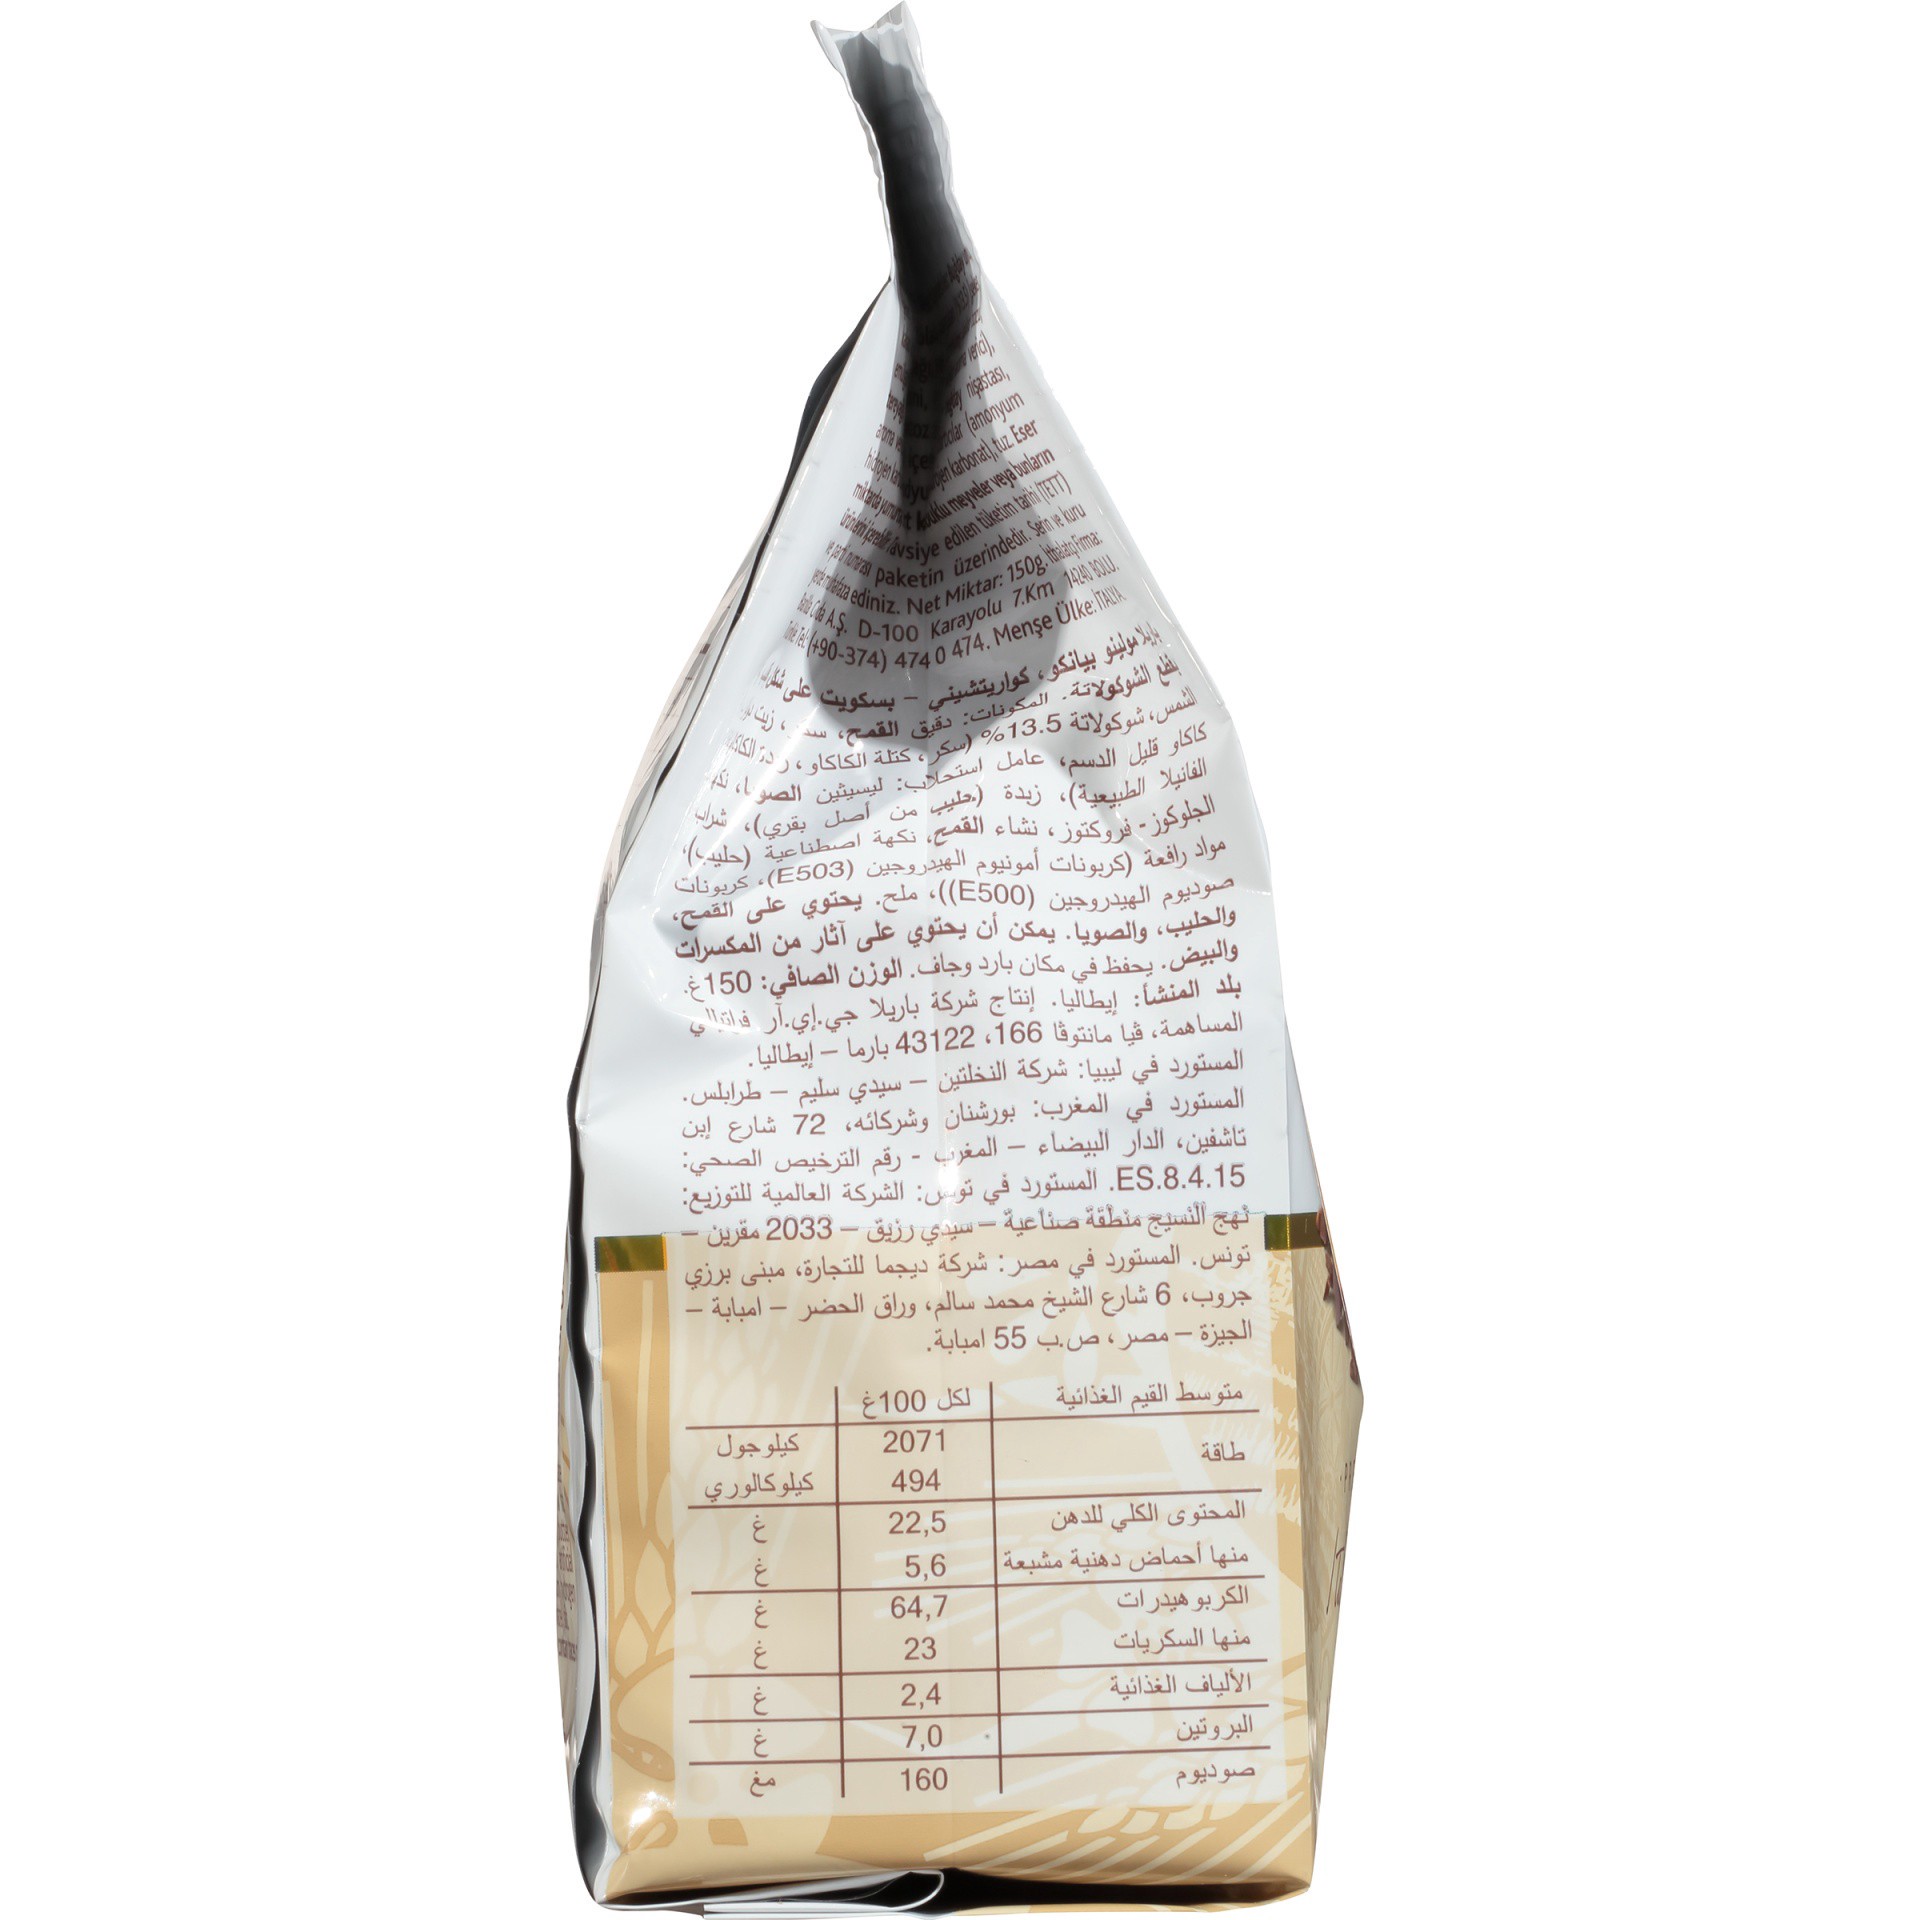 venci),
nişastası,
(amonyum
karbonat), tuz. Eser
kabuklu meyveler veya bunların
tavsiye edilen tüketim tarihi (TETT)
paketin üzerindedir. Serin ve kuru
ediniz. Net Miktar: 150g. İthalatçı Firma:
A.Ş. D-100 Karayolu 7.Km 14240 BOLU.
Tel: (+90-374) 474 0 474. Menşe Ülke: İTALYA
باريلا مولينو بيانكو، كواريتشيني – بسكويت على شكل
قطع الشوكولاتة. المكونات: دقيق القمح، سكر، زيت
الشمس، شوكولاتة 13.5% (سكر، كتلة الكاكاو، زبدة الكاكاو
كاكاو قليل الدسم، عامل استحلاب: ليسيثين الصويا،
الفانيلا الطبيعية)، زبدة (حليب من أصل بقري)، شراب
الجلوكوز- فروكتوز، نشاء القمح، نكهة اصطناعية (حليب)،
مواد رافعة (كربونات أمونيوم الهيدروجين (E503)، كربونات
صوديوم الهيدروجين (E500))، ملح. يحتوي على القمح،
والحليب، والصويا. يمكن أن يحتوي على آثار من المكسرات
والبيض. يحفظ في مكان بارد وجاف. الوزن الصافي: 150غ.
بلد المنشأ: إيطاليا. إنتاج شركة باريلا جي.إي.آر فراتيللي
المساهمة، ڤيا مانتوڤا 166، 43122 بارما – إيطاليا.
المستورد في ليبيا: شركة النخلتين – سيدي سليم – طرابلس.
المستورد في المغرب: بورشنان وشركائه، 72 شارع إبن
تاشفين، الدار البيضاء – المغرب - رقم الترخيص الصحي:
ES.8.4.15. المستورد في تونس: الشركة العالمية للتوزيع:
نهج النسيج منطقة صناعية – سيدي رزيق – 2033 مقرين –
تونس. المستورد في مصر: شركة ديجما للتجارة، مبنى برزي
جروب، 6 شارع الشيخ محمد سالم، وراق الحضر – امبابة –
الجيزة – مصر، ص.ب 55 امبابة.
متوسط القيم الغذائية لكل 100غ
طاقة 2071 كيلوجول
494 كيلوكالوري
المحتوى الكلي للدهن 22,5 غ
منها أحماض دهنية مشبعة 5,6 غ
الكربوهيدرات 64,7 غ
منها السكريات 23 غ
الألياف الغذائية 2,4 غ
البروتين 7,0 غ
صوديوم 160 مغ